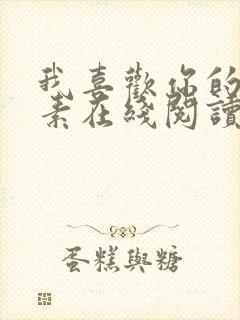 我喜歡你的
素在綫閱讀
蛋糕與糖